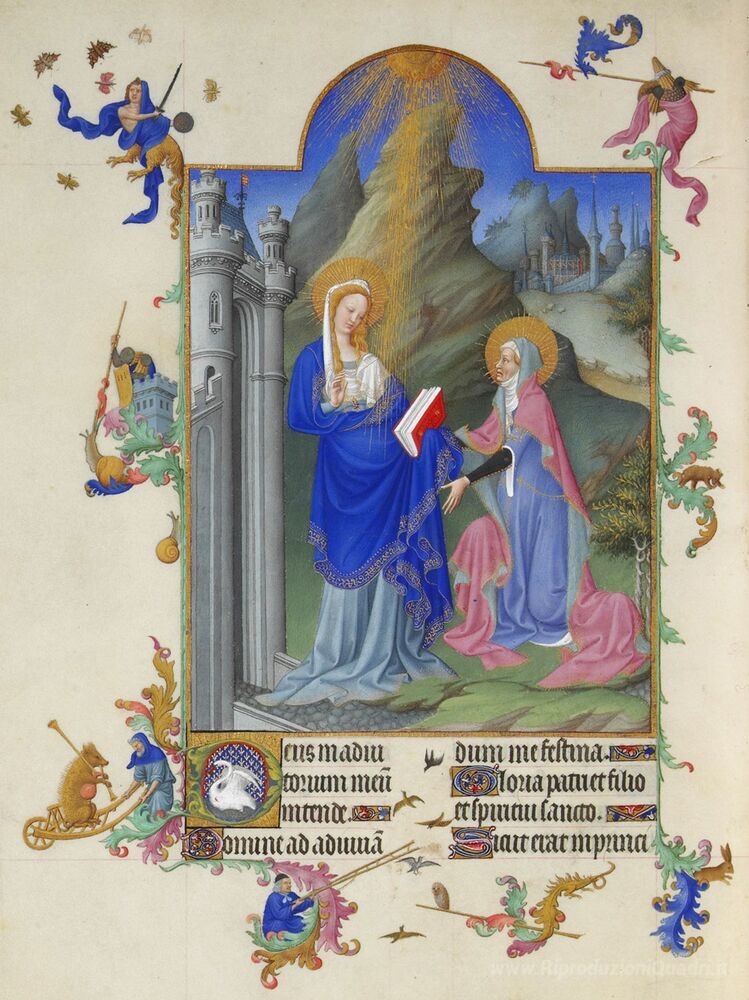 Deus in adiu
torium meū
intende.
Domine ad adiuuā
dum me festina.
Gloria patri et filio
et spiritui sancto.
Sicut erat in princi
www.RiproduzioniQuadri.it